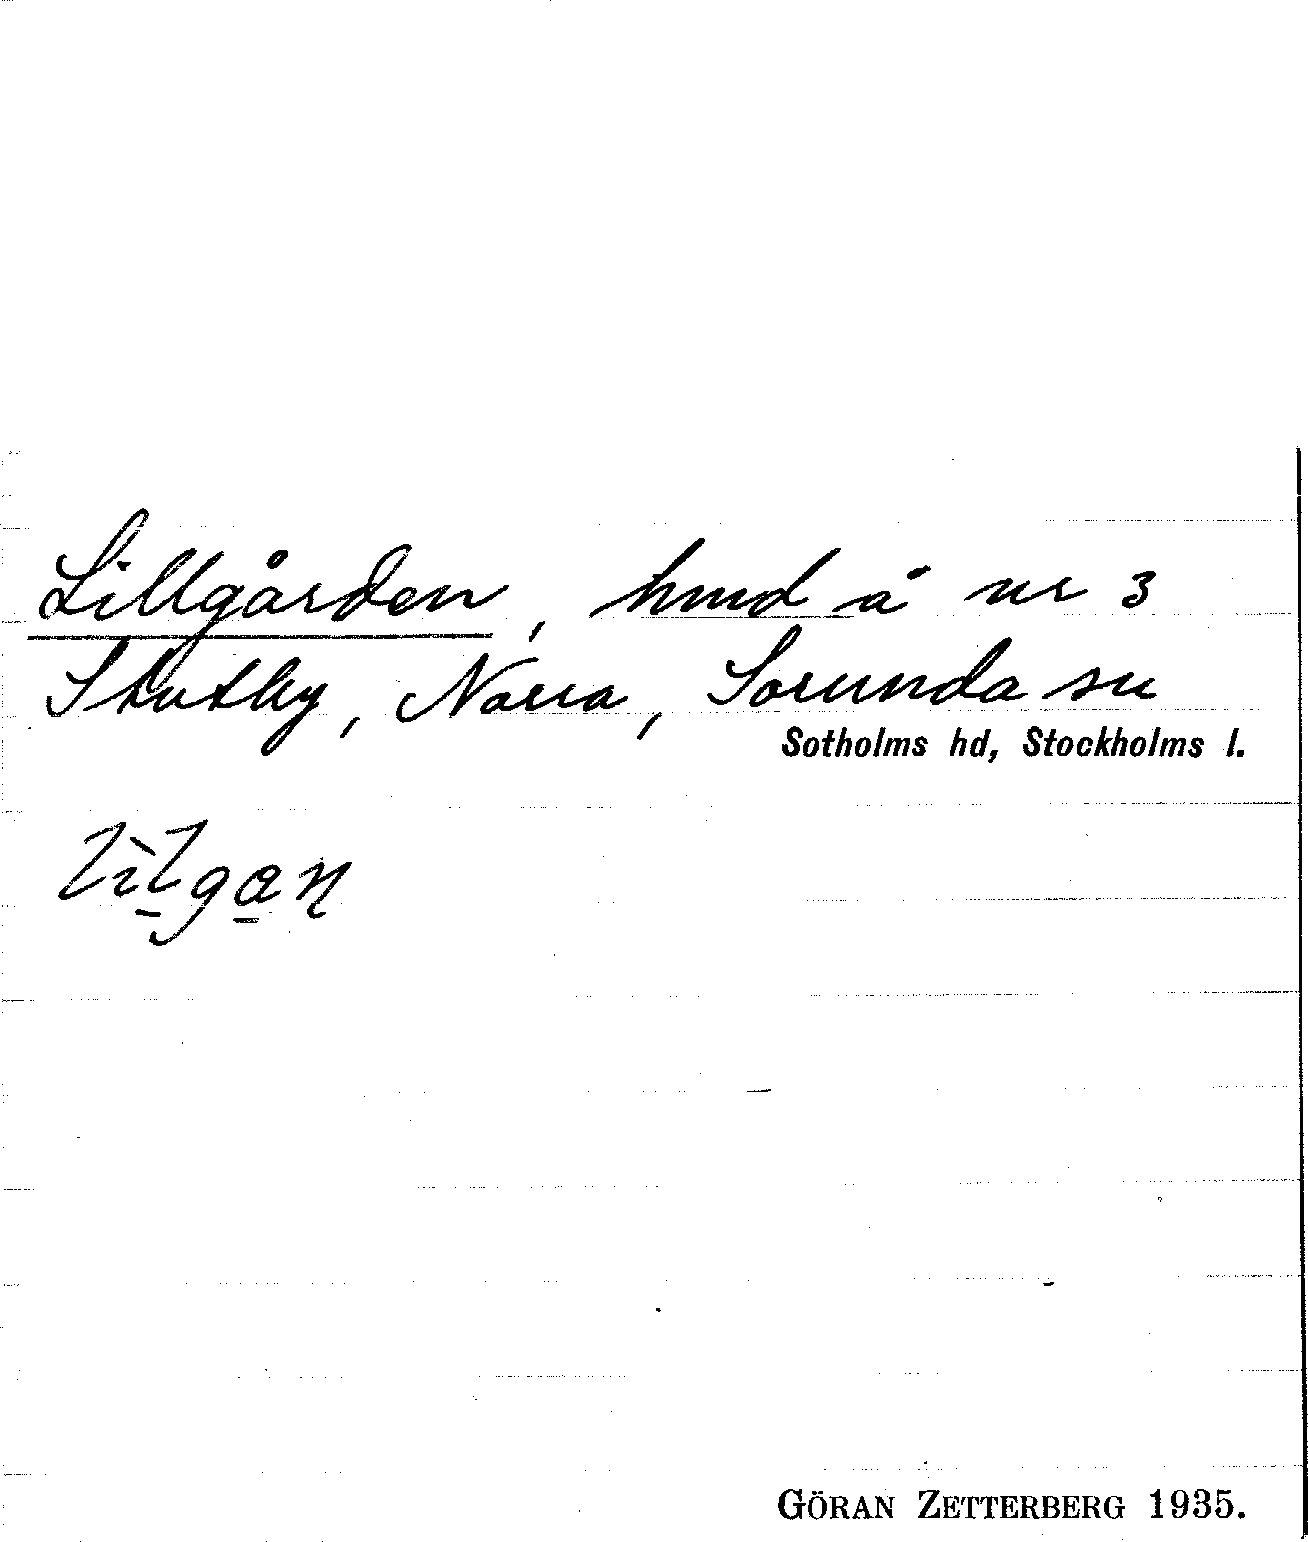 Lillgården, hmd å nr 3
Stutby, Norra, Sorunda sn
Sotholms hd, Stockholms l.
GÖRAN ZETTERBERG 1935.